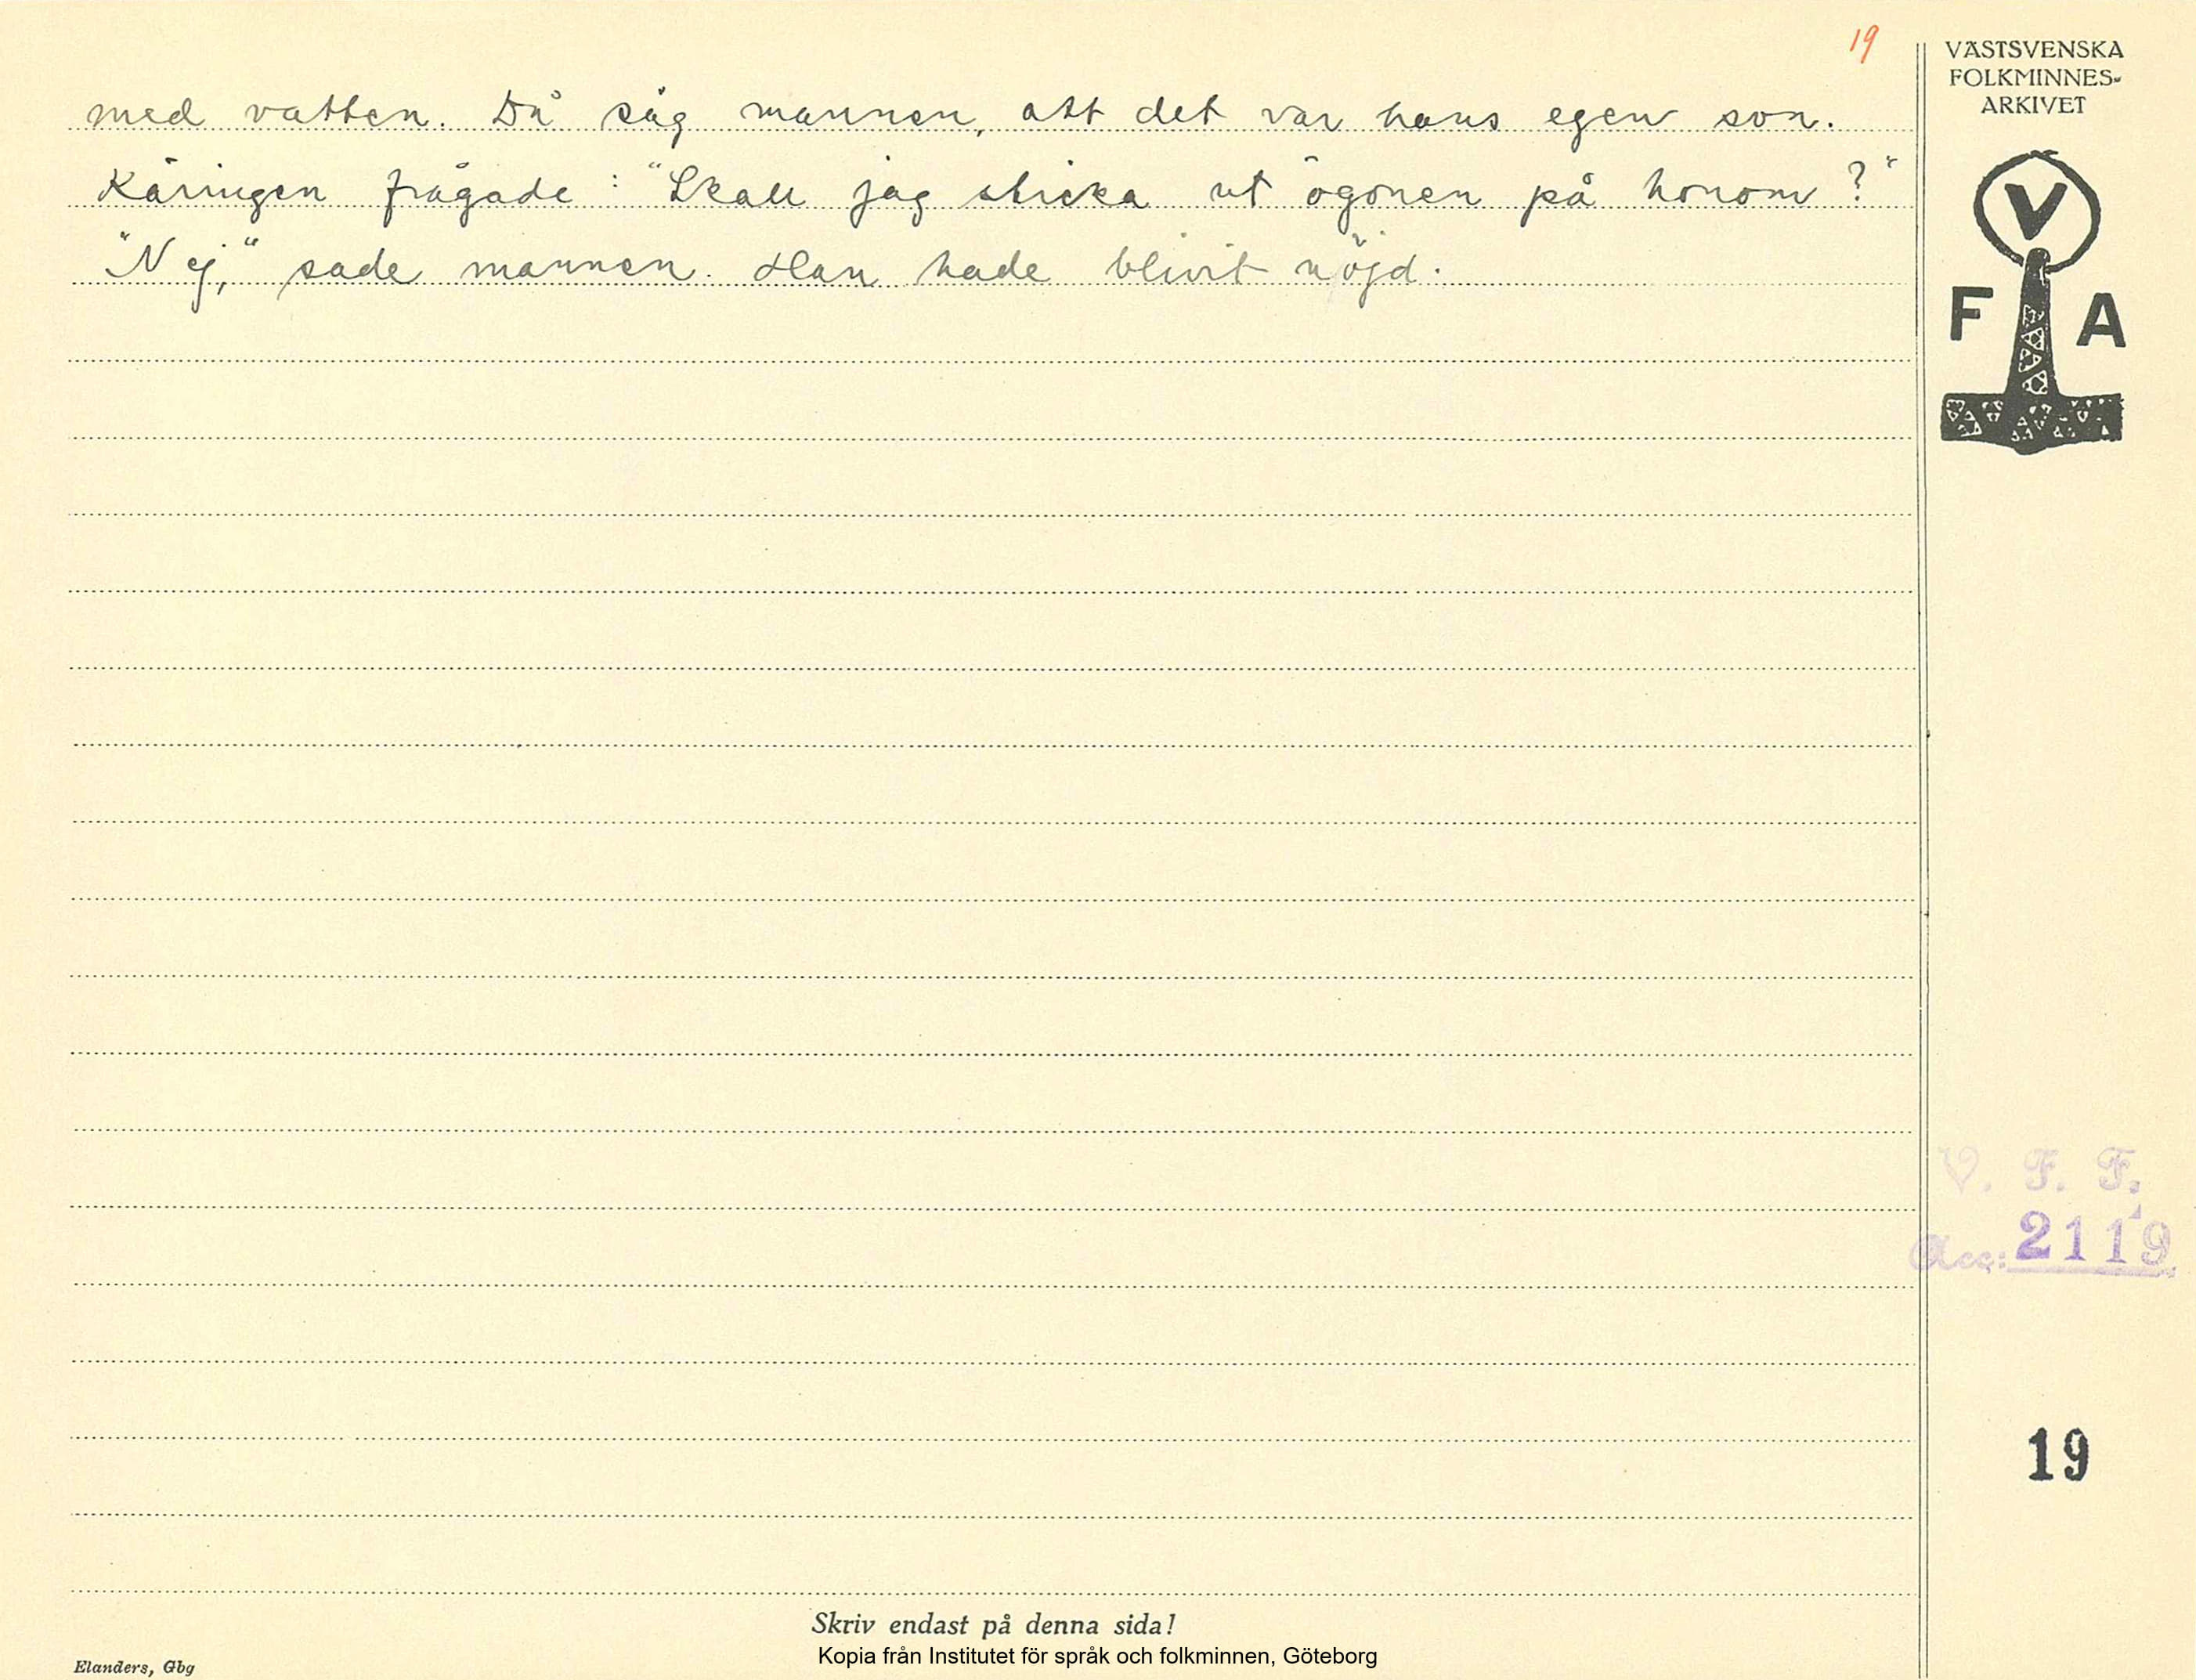 19
med vatten. Då såg mannen, att det var hans egen son.
Käringen frågade: "Skall jag sticka ut ögonen på honom?"
"Nej," sade mannen. Han hade blivit nöjd.
VÄSTSVENSKA
FOLKMINNES-
ARKIVET
V
F A
V. F. F.
Acc: 2119
19
Skriv endast på denna sida!
Kopia från Institutet för språk och folkminnen, Göteborg
Elanders, Gbg